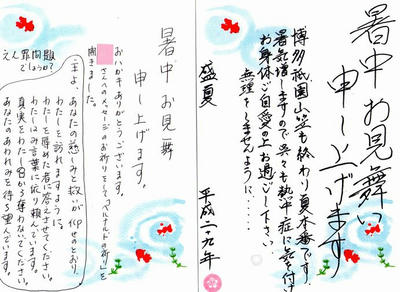 暑中お見舞い
申し上げます
博多祇園山笠も終わり夏本番です。
暑気増しますので呉々も熱中症に気を付け
お身体ご自愛の上お過ごし下さい
無理をしませんように・・・・
盛夏
平成二九年
暑中お見舞
申し上げます。
おハガキありがとうございます。
さんへのメッセージのお祈りとして「ベルナルドの祈」を
聞きました。
主よ、あなたの慈しみと救が仰せのとおり
わたしを訪れますように。
わたしを辱めた者に答えさせてください。
わたしはみ言葉に依り頼んでいます。
真実をわたしの口から奪わないでください。
あなたのあわれみを待ち望んでいます。
えん罪問題
でしょうか?